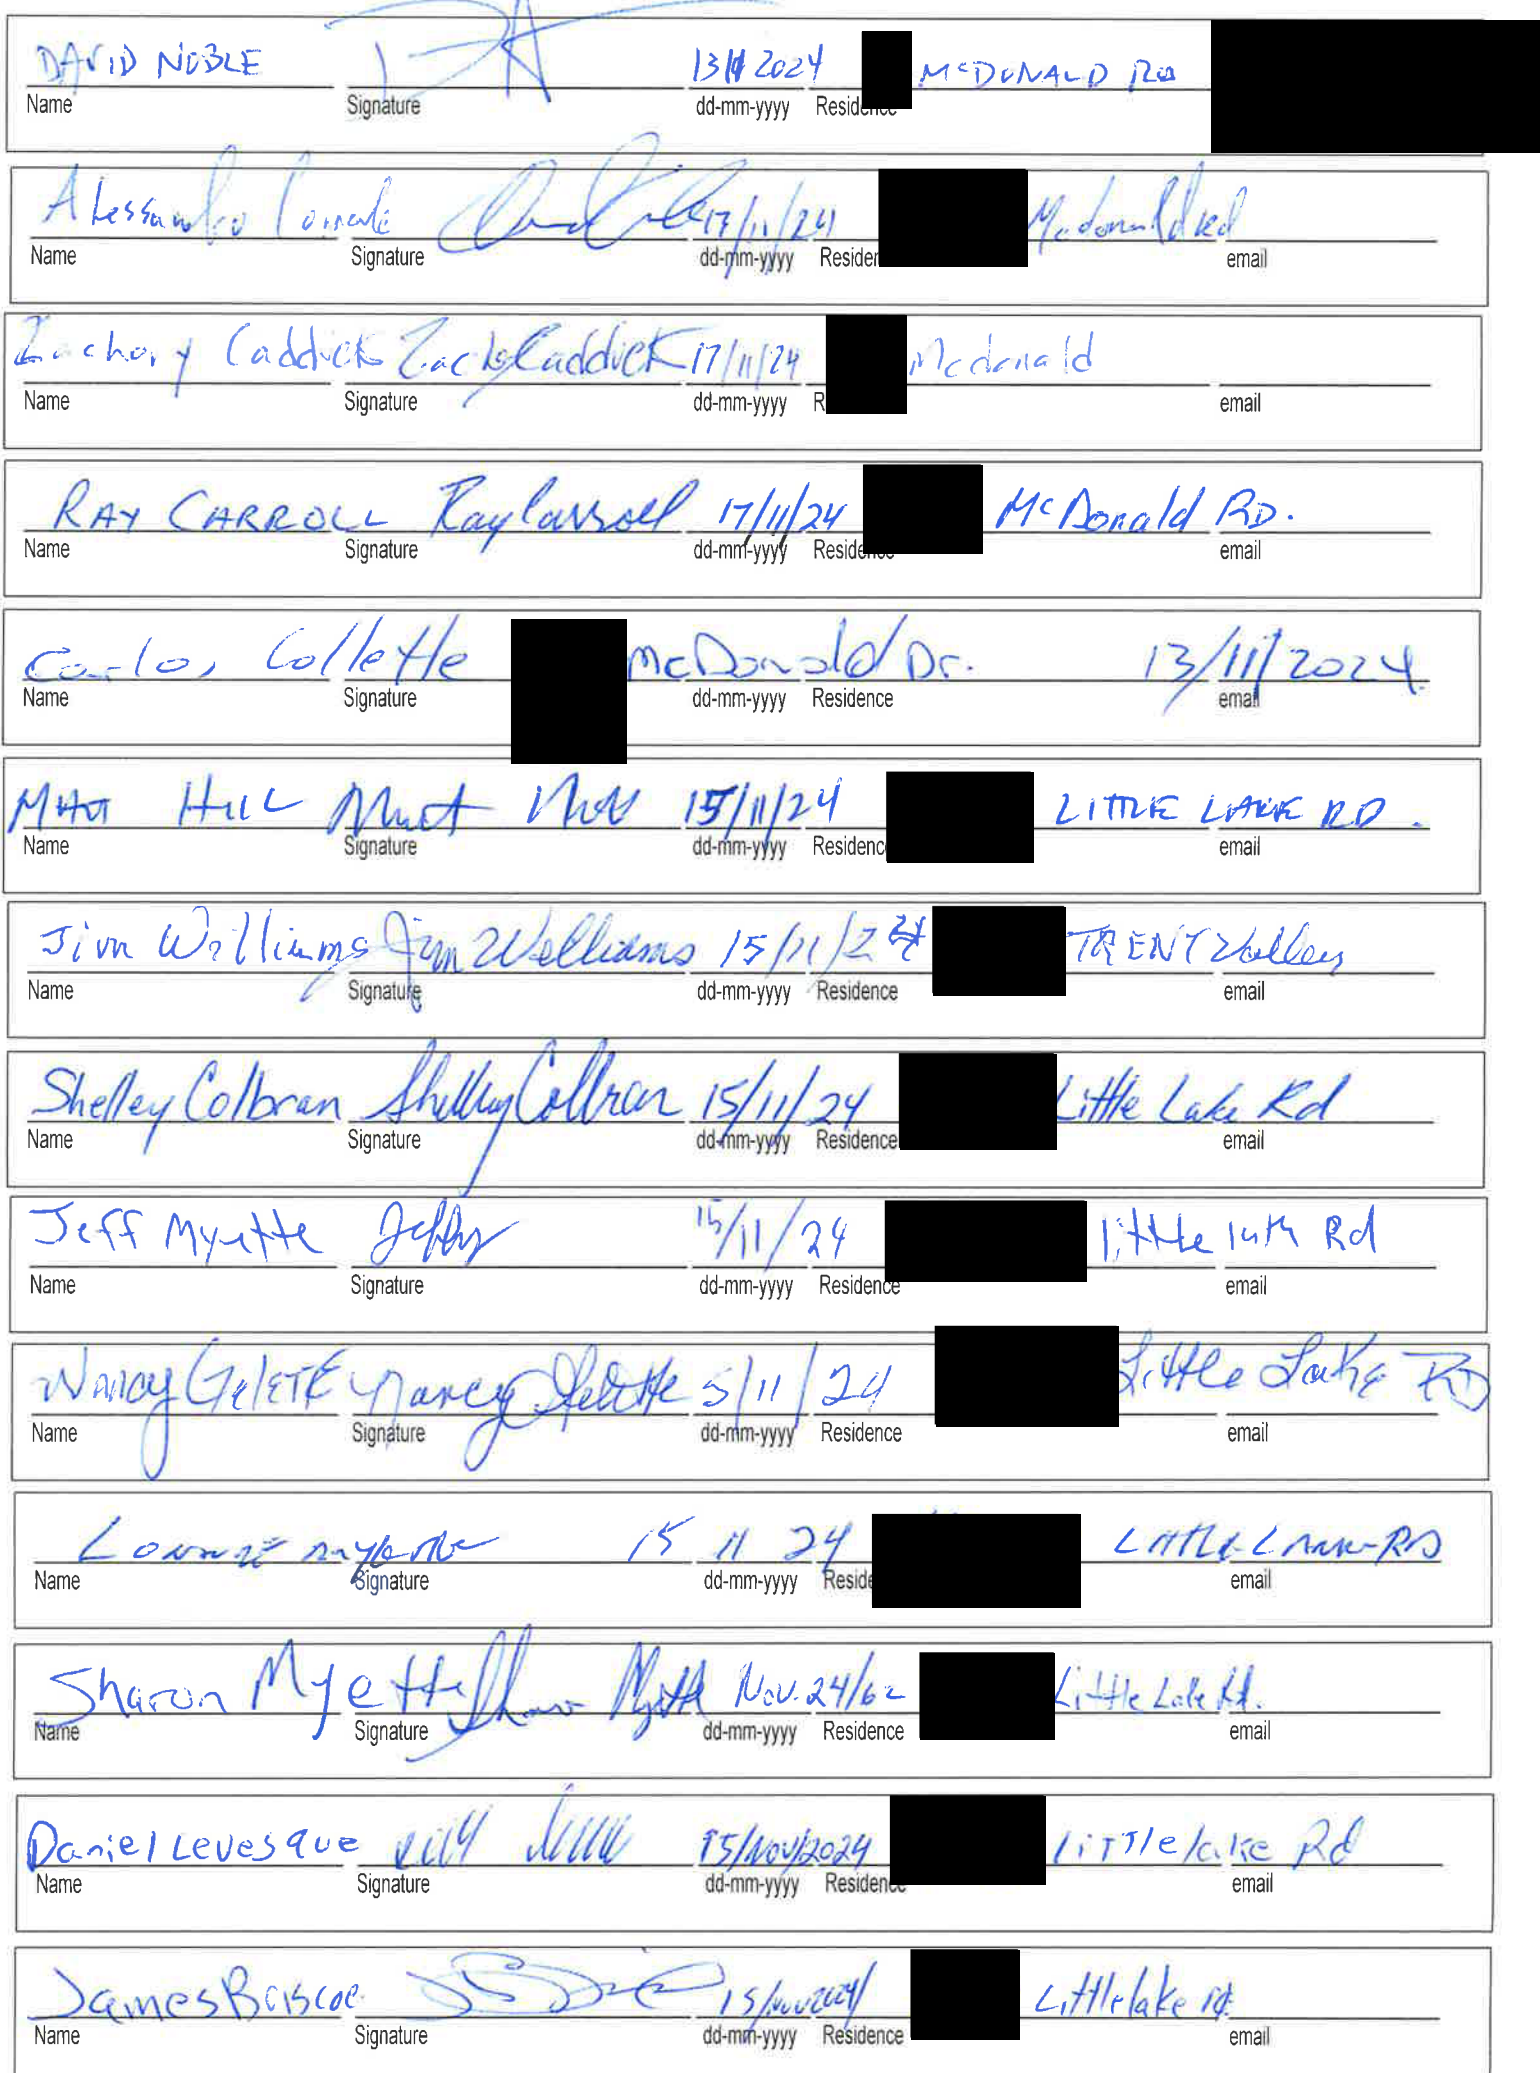 DAVID NOBLE 13/11 2024 McDONALD RD
Name Signature dd-mm-yyyy
Alessandro 17/11/24 Mcdonald Rd
Name Signature dd-mm-yyyy email
Zachary Caddick Zach Caddick 17/11/24 Mcdonald
Name Signature dd-mm-yyyy email
RAY CARROLL Ray Carroll 17/11/24 McDonald RD.
Name Signature dd-mm-yyyy Residence email
Carlos Collette McDonald Dr. 13/11/2024
Name Signature dd-mm-yyyy Residence email
MATT HILL Matt Hill 15/11/24 LITTLE LAKE RD.
Name Signature dd-mm-yyyy email
Jim Williams Jim Williams 15/11/24 TRENT Valley
Name Signature dd-mm-yyyy Residence email
Shelley Colbran Shelley Colbran 15/11/24 Little Lake Rd
Name Signature dd-mm-yyyy Residence email
Jeff Myette 15/11/24 little Rd
Name Signature dd-mm-yyyy Residence email
Nancy 5/11/24 Little Lake RD
Name Signature dd-mm-yyyy Residence email
15 11 24 LITTLE LAKE RD
Name Signature dd-mm-yyyy email
Sharon Myette Sharon Myette Nov. 24/ Little Lake Rd.
Name Signature dd-mm-yyyy Residence email
Daniel Levesque 15/Nov/2024 Little lake Rd
Name Signature dd-mm-yyyy Residence email
James Briscoe 15/Nov2024/ Little lake rd.
Name Signature dd-mm-yyyy Residence email